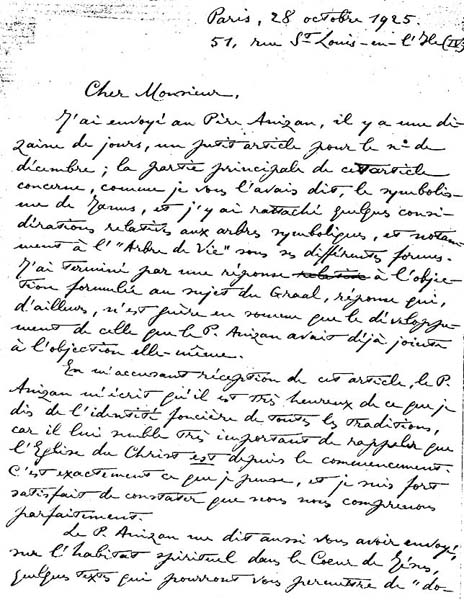 Paris, 28 octobre 1925.
51, rue St Louis-en-l'Ile (IVe)
Cher Monsieur,
J'ai envoyé au Père Anizan, il y a une di-
zaine de jours, un petit article pour le no de
décembre ; la partie principale de cet article
concerne, comme je vous l'avais dit, le symbolis-
me de Janus, et j'y ai rattaché quelques consi-
dérations relatives aux arbres symboliques, et notam-
ment à l'"Arbre de Vie" sous ses différentes formes.
J'ai terminé par une réponse relative à l'objec-
tion formulée au sujet du Graal, réponse qui,
d'ailleurs, n'est guère en somme que le développe-
ment de celle que le P. Anizan avait déjà jointe
à l'objection elle-même.
En m'accusant réception de cet article, le P.
Anizan m'écrit qu'il est très heureux de ce que je
dis de l'identité foncière de toutes les traditions,
car il lui semble très important de rappeler que
l'Eglise du Christ est depuis le commencement.
C'est exactement ce que je pense, et je suis fort
satisfait de constater que nous nous comprenons
parfaitement.
Le P. Anizan me dit aussi vous avoir envoyé,
sur l'habitat spirituel dans le Coeur de Jésus,
quelques textes qui pourront vous permettre de "do-